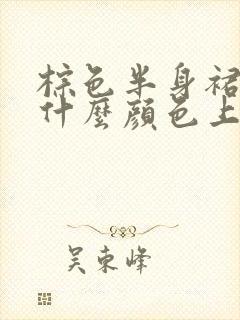 棕色半身裙
什麼顏色上
吴東峰